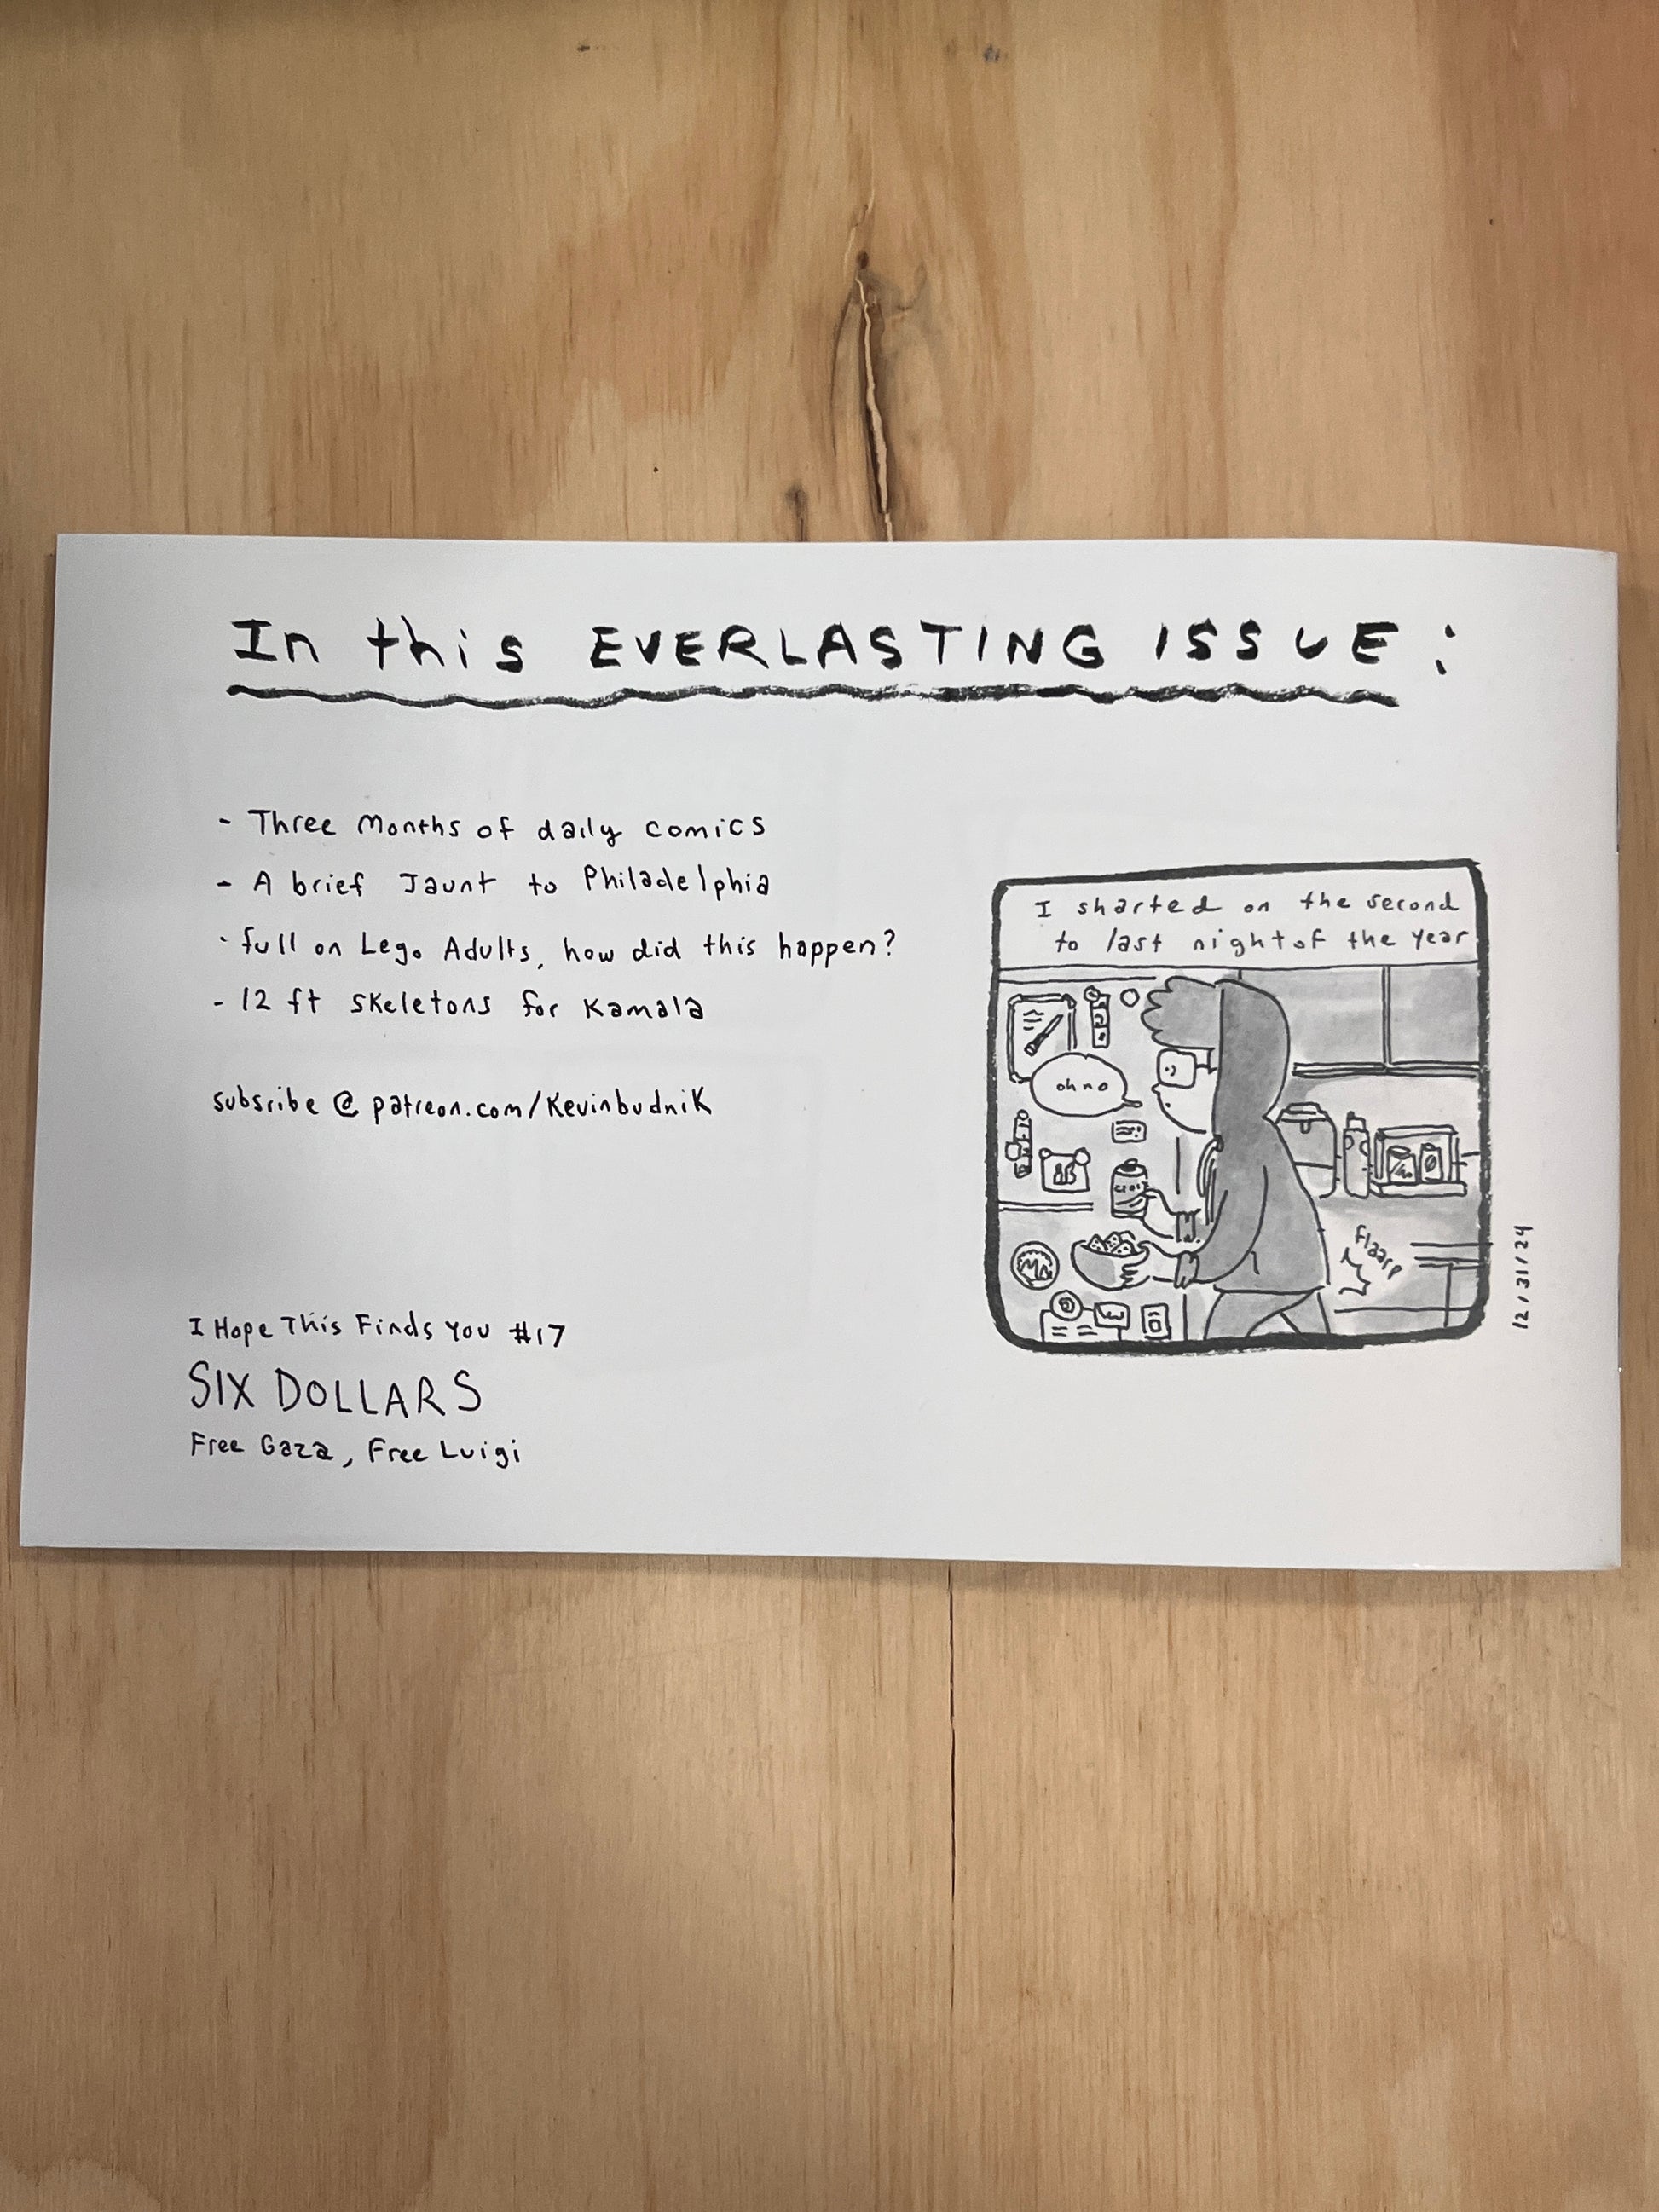 In this EVERLASTING ISSUE:
- Three Months of daily comics
- A brief Jaunt to Philadelphia
- full on Lego Adults, how did this happen?
- 12 ft skeletons for Kamala
subscribe @ patreon.com/KevinbudniK
I Hope This Finds You #17
SIX DOLLARS
Free Gaza, Free Luigi
I sharted on the second
to last night of the Year
oh no
flaarp
12/31/24